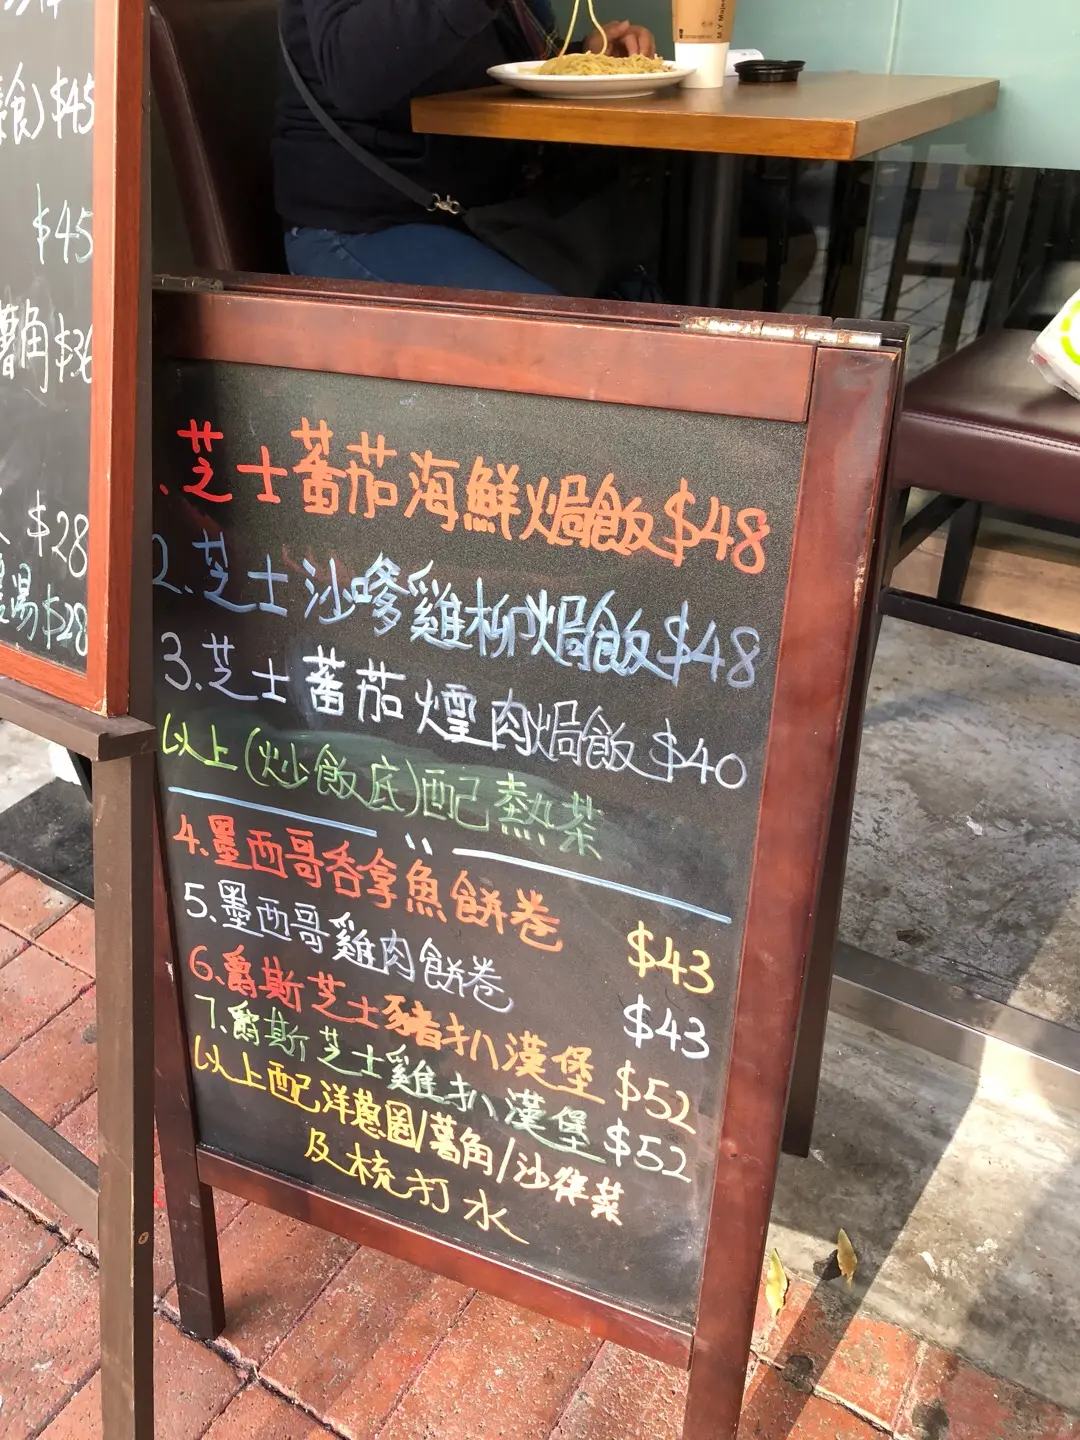 食) $45
$45
薯角 $36
$28
湯 $28
1.芝士蕃茄海鮮焗飯 $48
2.芝士沙嗲雞柳焗飯 $48
3.芝士蕃茄煙肉焗飯 $40
以上(炒飯底)配熱茶
4.墨西哥吞拿魚餅卷 $43
5.墨西哥雞肉餅卷 $43
6.爵斯芝士豬扒漢堡 $52
7.爵斯芝士雞扒漢堡 $52
以上配洋蔥圈/薯角/沙律菜
及梳打水